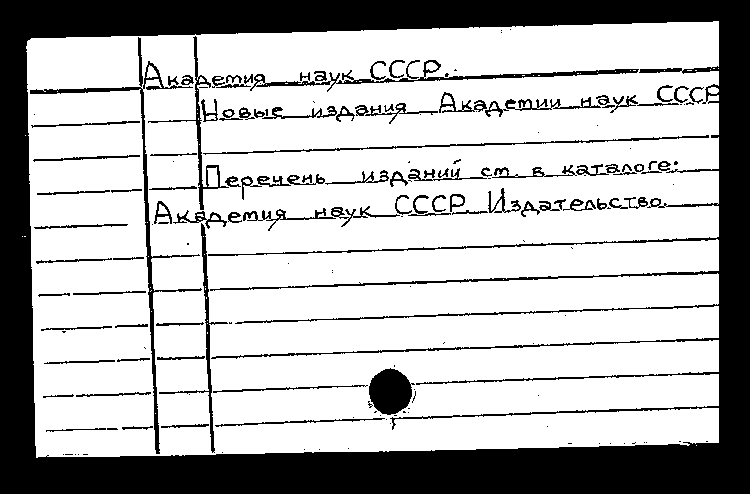 Академия наук СССР.
Новые издания Академии наук СССР
Перечень изданий см. в каталоге:
Академия наук СССР. Издательство.